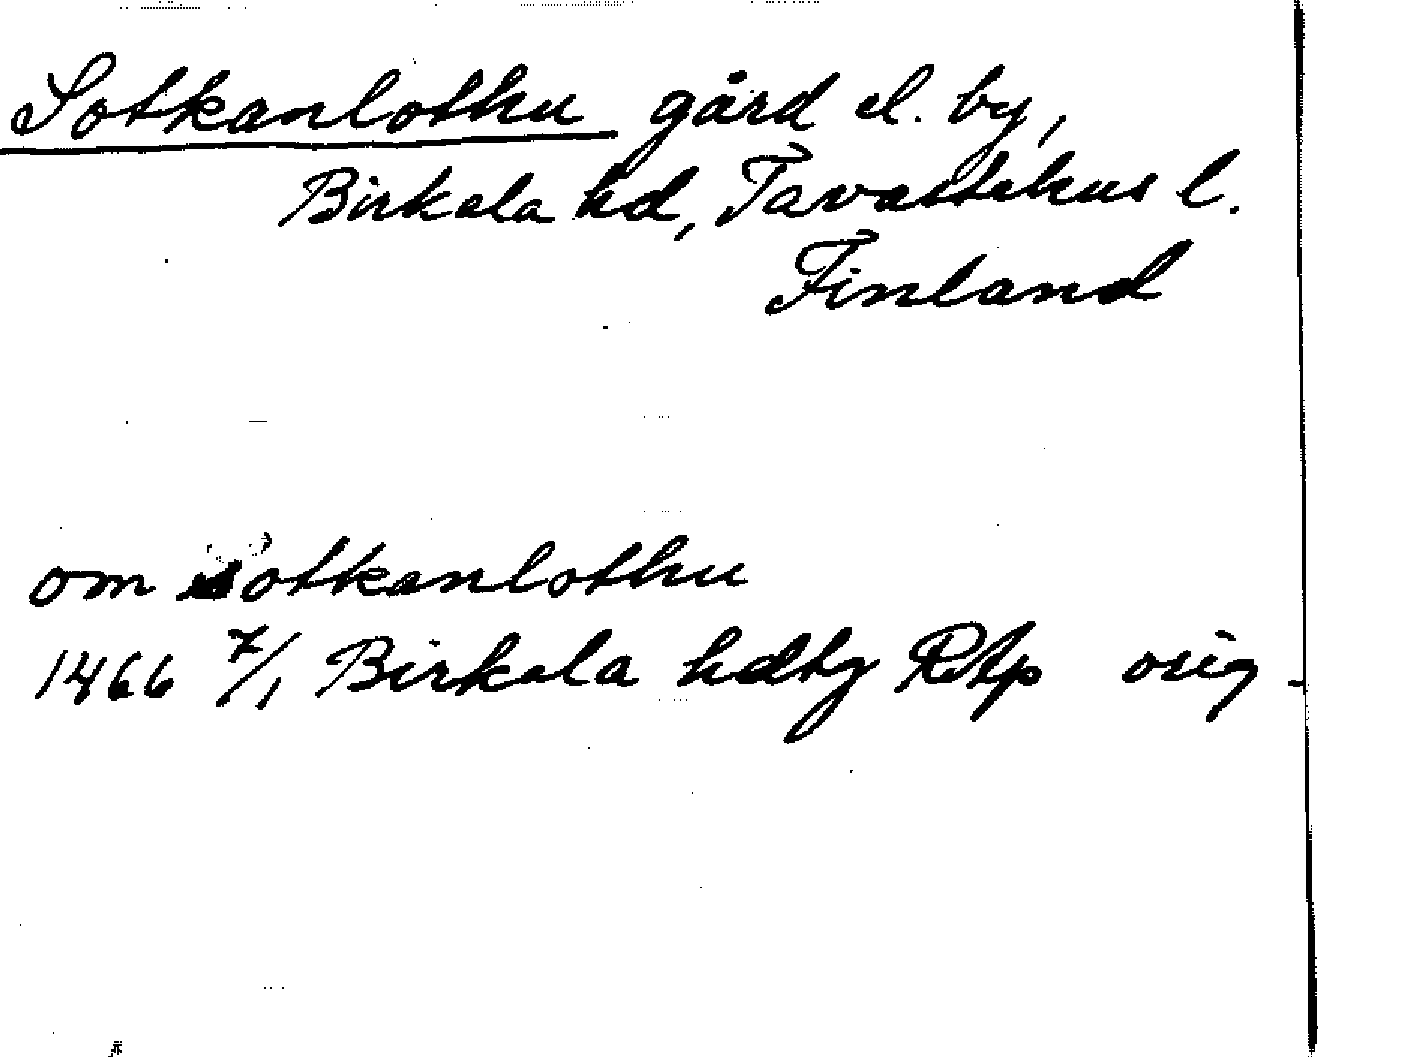 Sotkanlothu gård el. by,
Birkala hd, Tavastehus l.
Finland
om sotkanlothu
1466 7/1 Birkala hdtg RAp orig